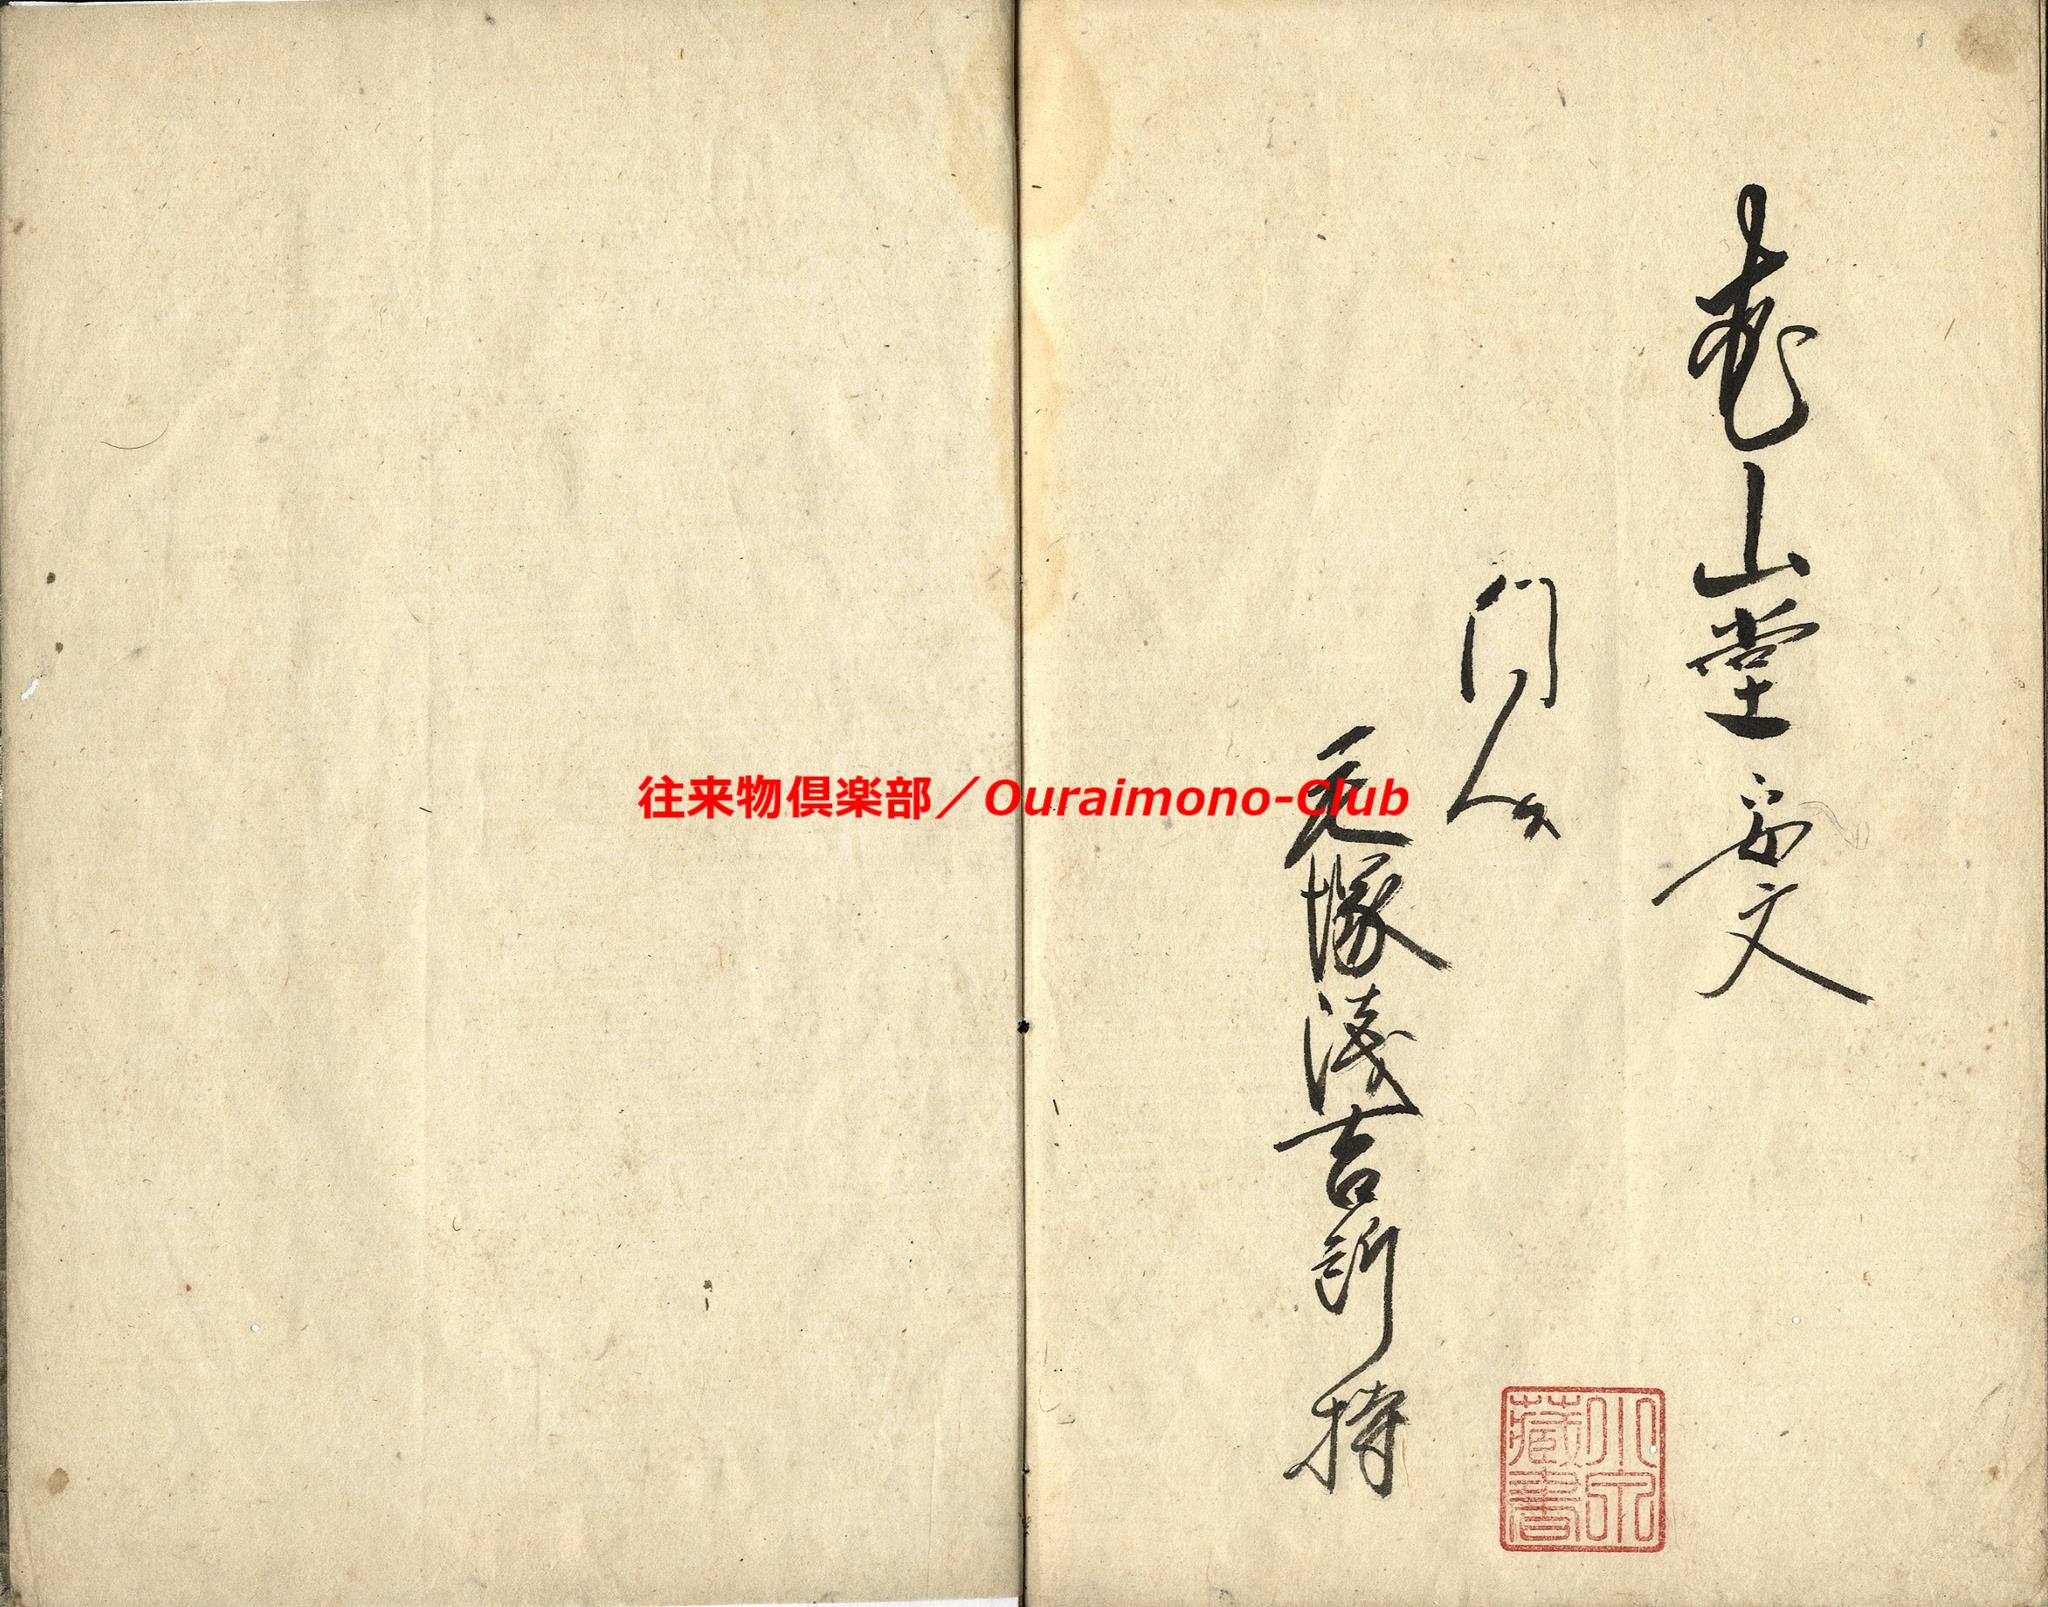 山堂
文
門人
塚浅吉所持
小泉蔵書
往来物倶楽部／Ouraimono-Club